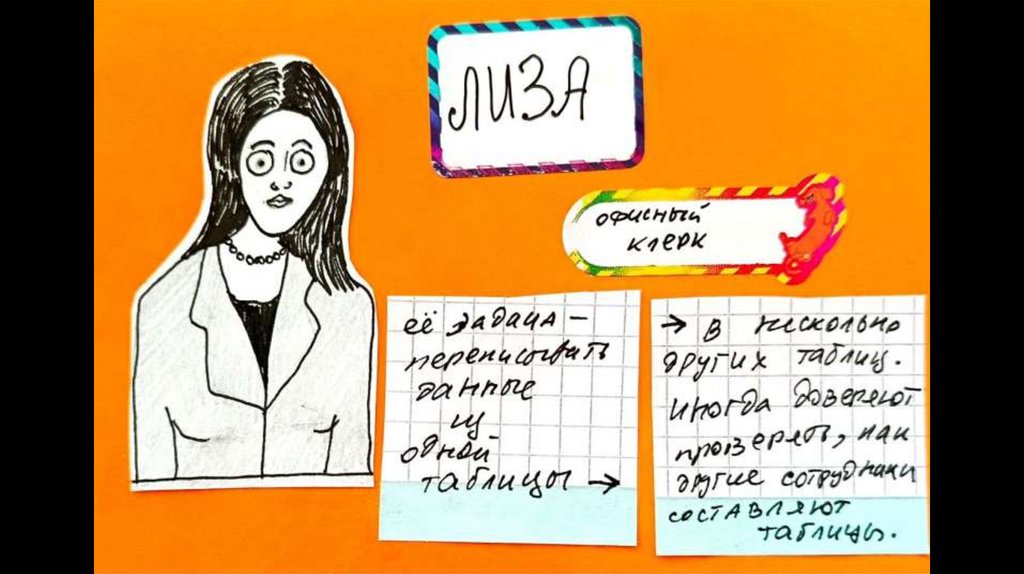 ЛИЗА
офисный
клерк
её задача –
переписывать
данные
из
одной
таблицы →
→ в несколько
других таблиц.
Иногда доверяют
проверять, как
другие сотрудники
составляют
таблицы.